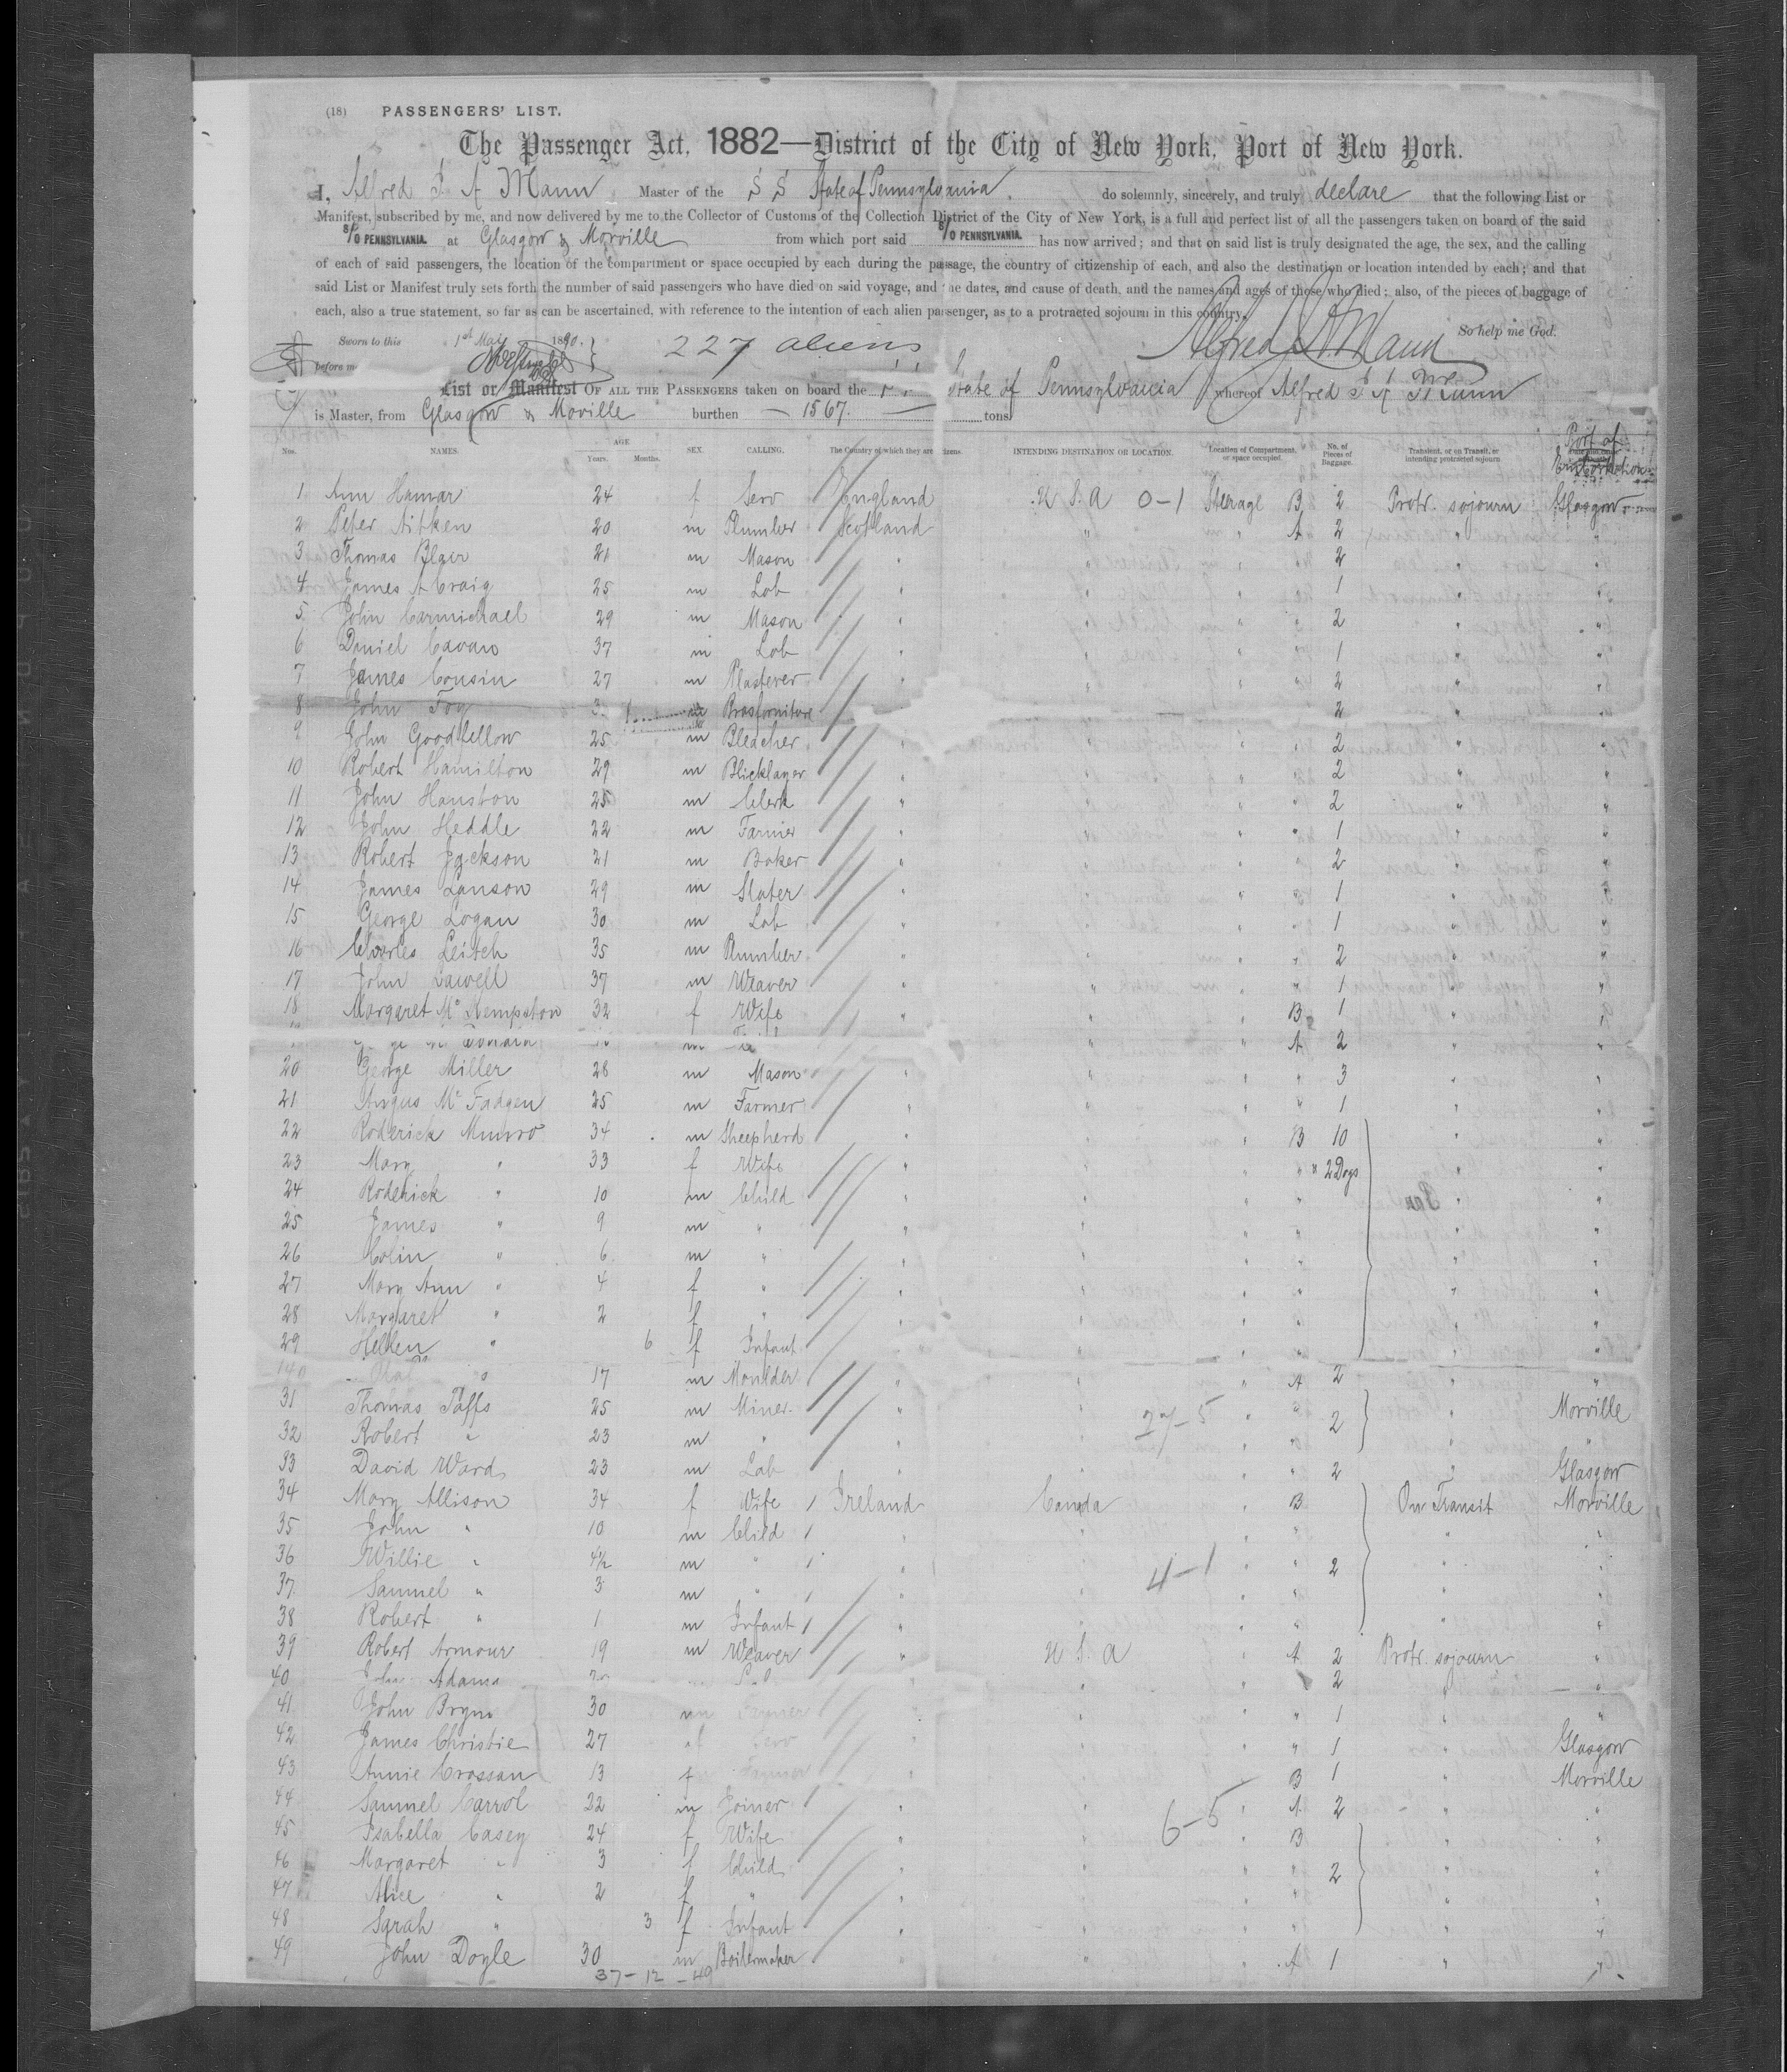 (18) PASSENGERS' LIST.
The Passenger Act, 1882—District of the City of New York, Port of New York.
I, Alfred J A Mann Master of the S S State of Pennsylvania do solemnly, sincerely, and truly declare that the following List or
Manifest, subscribed by me, and now delivered by me to the Collector of Customs of the Collection District of the City of New York, is a full and perfect list of all the passengers taken on board of the said
S/O PENNSYLVANIA. at Glasgow & Morville from which port said S/O PENNSYLVANIA. has now arrived; and that on said list is truly designated the age, the sex, and the calling
of each of said passengers, the location of the compartment or space occupied by each during the passage, the country of citizenship of each, and also the destination or location intended by each; and that
said List or Manifest truly sets forth the number of said passengers who have died on said voyage, and the dates, and cause of death, and the names and ages of those who died; also, of the pieces of baggage of
each, also a true statement, so far as can be ascertained, with reference to the intention of each alien passenger, as to a protracted sojourn in this country.
So help me God.
Sworn to this 1st May 1890. 227 aliens Alfred J A Mann
before me
List or Manifest OF ALL THE PASSENGERS taken on board the State of Pennsylvania whereof Alfred J A Mann
is Master, from Glasgow & Moville burthen — 1567. — tons
Nos. NAMES. AGE Years. Months. SEX. CALLING. The Country of which they are citizens. INTENDING DESTINATION OR LOCATION. Location of Compartment or space occupied. No. of Pieces of Baggage. Transient, or on Transit, or intending protracted sojourn Port of Embarkation
1 Ann Hamar 24 f Serv England U.S.A 0-1 Steerage B 2 Protr. sojourn Glasgow
2 Peter Aitken 20 m Plumber Scotland " " A 2 " "
3 Thomas 21 m Mason " " 2 " "
4 James A Craig 25 m Lab " " 1 " "
5 John Carmichael 29 m Mason " " 2 " "
6 Daniel Cavan 37 m Lab " " 1 " "
7 James Cousin 27 m Plasterer " " " 2 " "
8 John Foy 3 m 2 " "
9 John Goodfellow 25 m Bleacher " " " 2 " "
10 Robert Hamilton 29 m Blicklayer " " " 2 " "
11 John Hauston 25 m Clerk " " " 2 " "
12 John Heddle 22 m Farmer " " " 1 " "
13 Robert Jackson 21 m Baker " " " 2 " "
14 James Lanson 29 m Slater " " " 1 " "
15 George Logan 30 m Lab " " " 1 " "
16 Charles Leitch 35 m Plumber " " " 2 " "
17 John Lawell 37 m Weaver " " " 1 " "
18 Margaret Mc Kempston 32 f Wife " " " B 1 " "
m " " A 2 " "
20 George Miller 28 m Mason " " " 3 " "
21 Angus Mc Fadgen 25 m Farmer " " " 1 " "
22 Roderick Munro 34 m Sheepherd " " B 10 " "
23 Mary " 33 f Wife " " " 2 Dogs " "
24 Roderick " 10 m Child " " " " "
25 James " 9 m " " " " " "
26 Colin " 6 m " " " " " "
27 Mary Ann " 4 f " " " " " "
28 Margaret " 2 f " " " " " "
29 Hellen " 6 f Infant " " " " "
17 m Moulder " " A 2 " "
31 Thomas Taffs 25 m Miner " " 27-5 " 2 " Morville
32 Robert " 23 m " " " " " "
33 David Ward 23 m Lab " " " 2 " Glasgow
34 Mary Allison 34 f Wife Ireland Canada " B On Transit Morville
35 John " 10 m Child " " " " "
36 Willie " 4½ m " " 4-1 " 2 " "
37 Samuel " 3 m " " " " " "
38 Robert " 1 m Infant " " " " "
39 Robert Armour 19 m Weaver " U.S.A " A 2 Protr. sojourn "
40 John Adams " " 2 " "
41 John Bryns 30 m Farmer " " " 1 " "
42 James Christie 27 Serv " " " 1 " Glasgow
43 Annie Crossan 13 f " " B 1 " Morville
44 Samuel Carrol 22 m Joiner " " A 2 " "
45 Isabella Casey 24 f Wife " 6-5 " B " "
46 Margaret " 3 f Child " " " 2 " "
47 Alice " 2 f " " " " " "
48 Sarah " 3 f Infant " " " " "
49 John Doyle 30 m Boilermaker " " A 1 " "
37-12-49